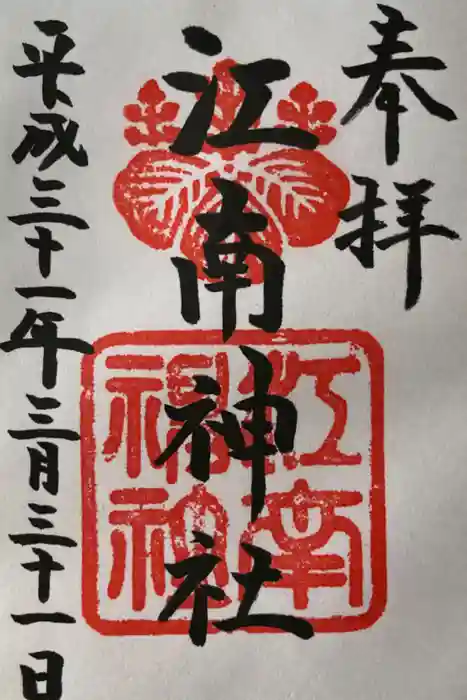 奉拝
江南神社
平成三十一年三月三十一日
江南
神社